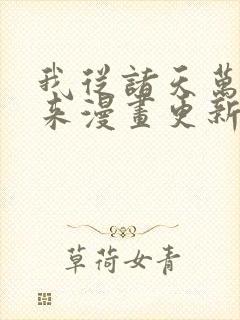 我從諸天萬
来漫畫更新
草荷女青